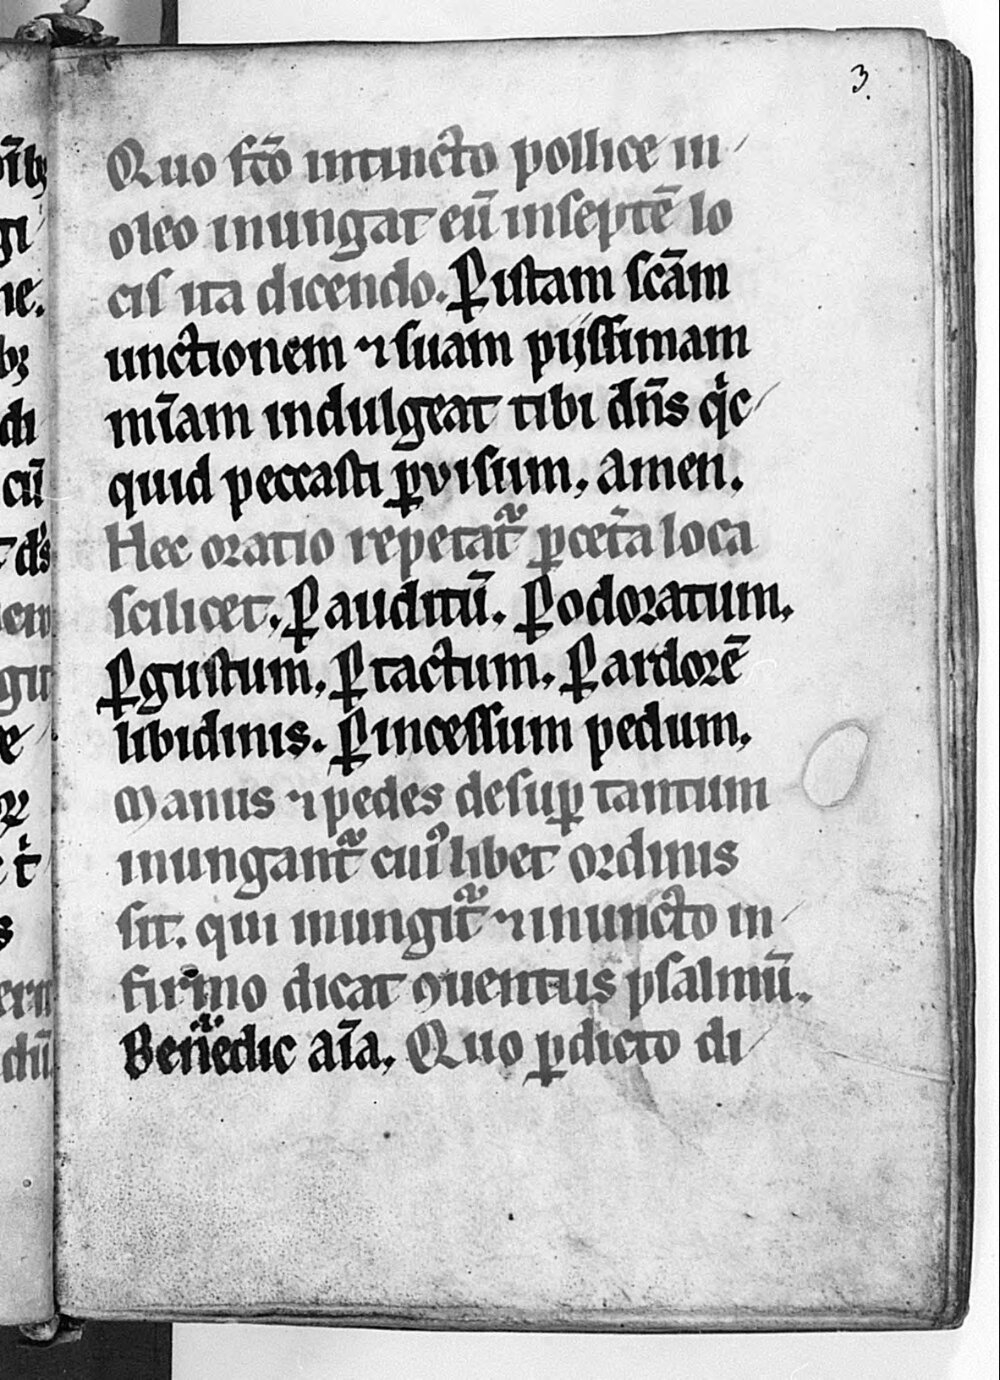 3.
Quo fcō intincto pollice in
oleo inungat eū inseptē lo
cis ita dicendo. Ꝑ istam scām
unctionem ⁊ suam pijssimam
mīam indulgeat tibi dn̄s qͥc
quid peccasti ꝑ visum. Amen.
Hec oratio repetat᷑ ꝑ cet̄a loca
scilicet. Ꝑ auditū. Ꝑ odoratum.
Ꝑ gustum. Ꝑ tactum. Ꝑ ardorē
libidinis. Ꝑ incessum pedum.
Manus ⁊ pedes desuꝑ tantum
inungant᷑ cuiꝰlibet ordinis
sit. qui inungit᷑ ⁊ inuncto in
firmo dicat ꝯuentus psalmū.
Benedic aīa. Quo p̱dicto di